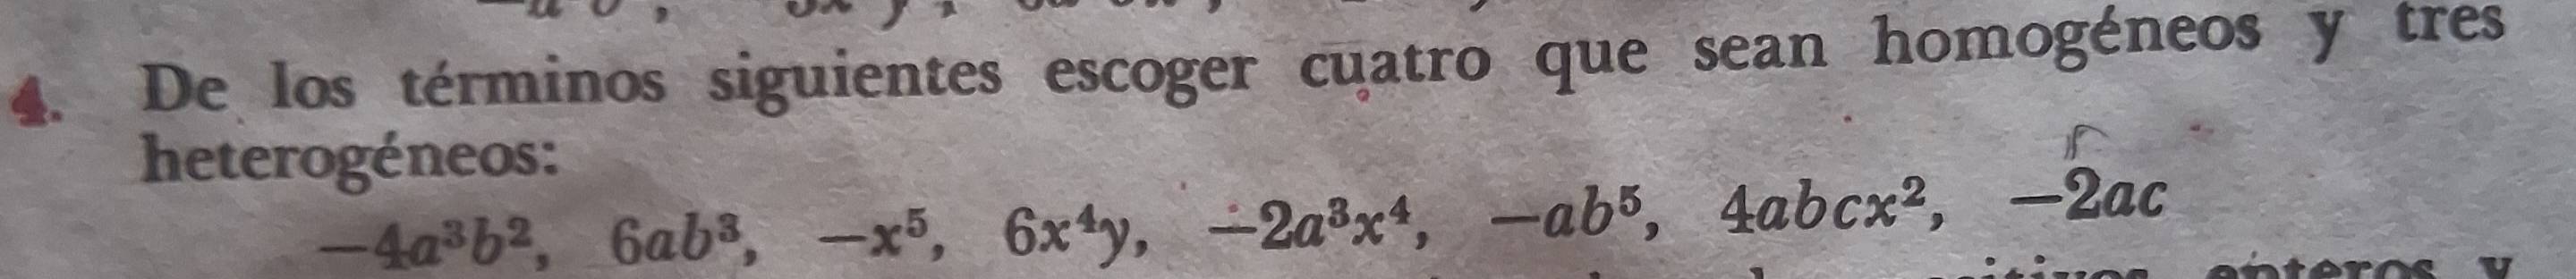 4. De los términos siguientes escoger cuatro que sean homogéneos y tres
heterogéneos:
−4a³b², 6ab³, −x⁵, 6x⁴y, −2a³x⁴, −ab⁵, 4abcx², −2ac
enteros y